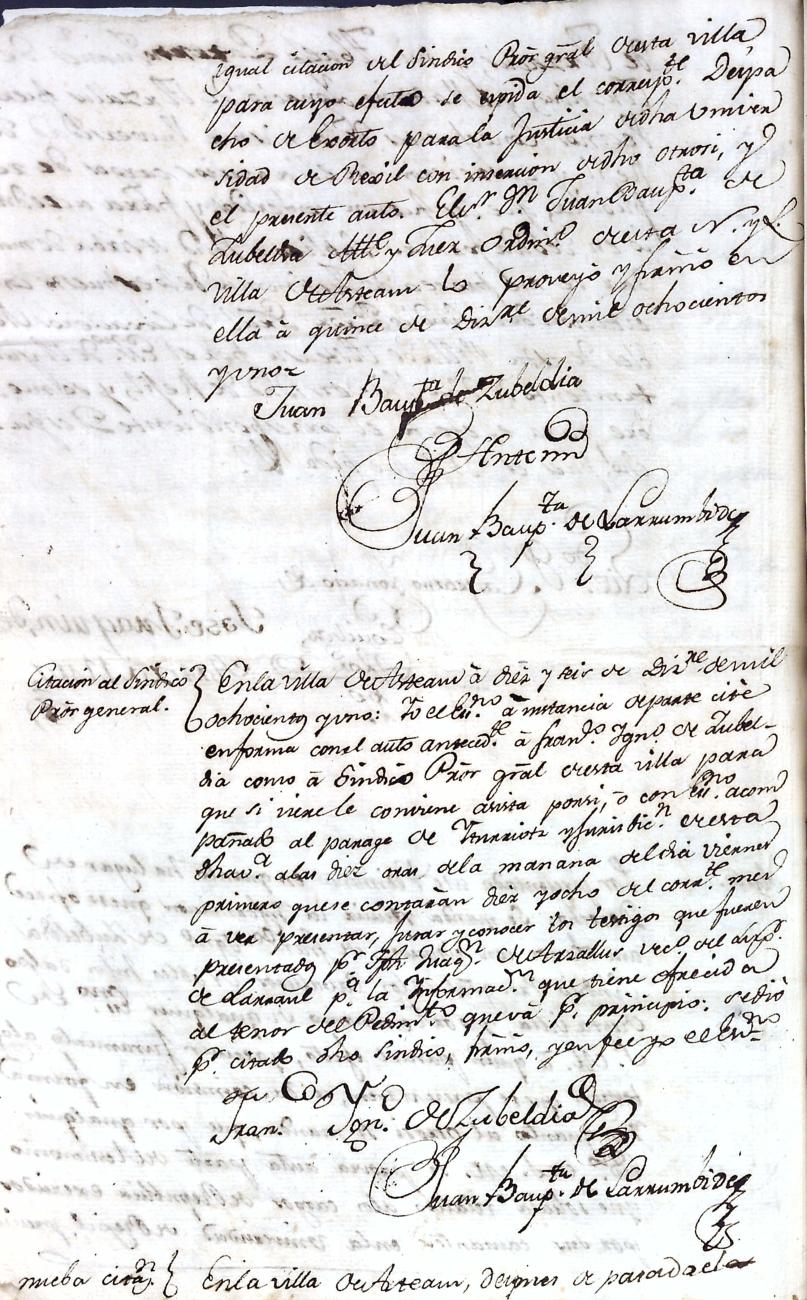 igual citacion al Sindico Pror. gral de esta villa
para cuyo efecto se espida el correspte. Despa
cho de Exorto para la Justicia de dha Univer
sidad de Rexil con insercion de dho otrosi, y
el presente auto. El Sr. Dn. Juan Baupta. de
Zubeldia Alle. y Juez Ordino. de esta N. y L.
villa de Asteasu lo proveyó y firmó en
ella à quince de Dizre. de mil ochocientos
y uno=
Juan Baupta. de Zubeldia
Antemi
Juan Baupta. de Larrumbide
Citacion al Sindico
Pror general.
En la villa de Asteasu à diez y seis de Dizre. de mil
ochocientos y uno: Yo el Essno. à instancia de parte citè
en forma con el auto anteced.te à Frano. Igno. de Zubel-
dia como à Sindico Pror gral de esta villa para
que si viere le conviene asista por si, ò con Essno. acom
pañado al parage de Yturriotz y Jurisdicn. de esta
dha va. a las diez oras de la mañana del dia viernes
primero que se contaràn diez y ocho del corrte. mes
à ver presentar, jurar y conocer los testigos que fueren
presentados pr. Jph Juaqn. de Arsallus veco. del lugr.
de Larraul pa. la Informacn. que tiene ofrecida
al tenor del Pedimto. que và pr. principio: se diò
pr. citado dho Sindico, firmò, y en fee yo el Essno.=
Fran. Ign. de Zubeldia
Juan Baupta. de Larrumbide
nueba citan.
En la villa de Asteasu, despues de pasada la